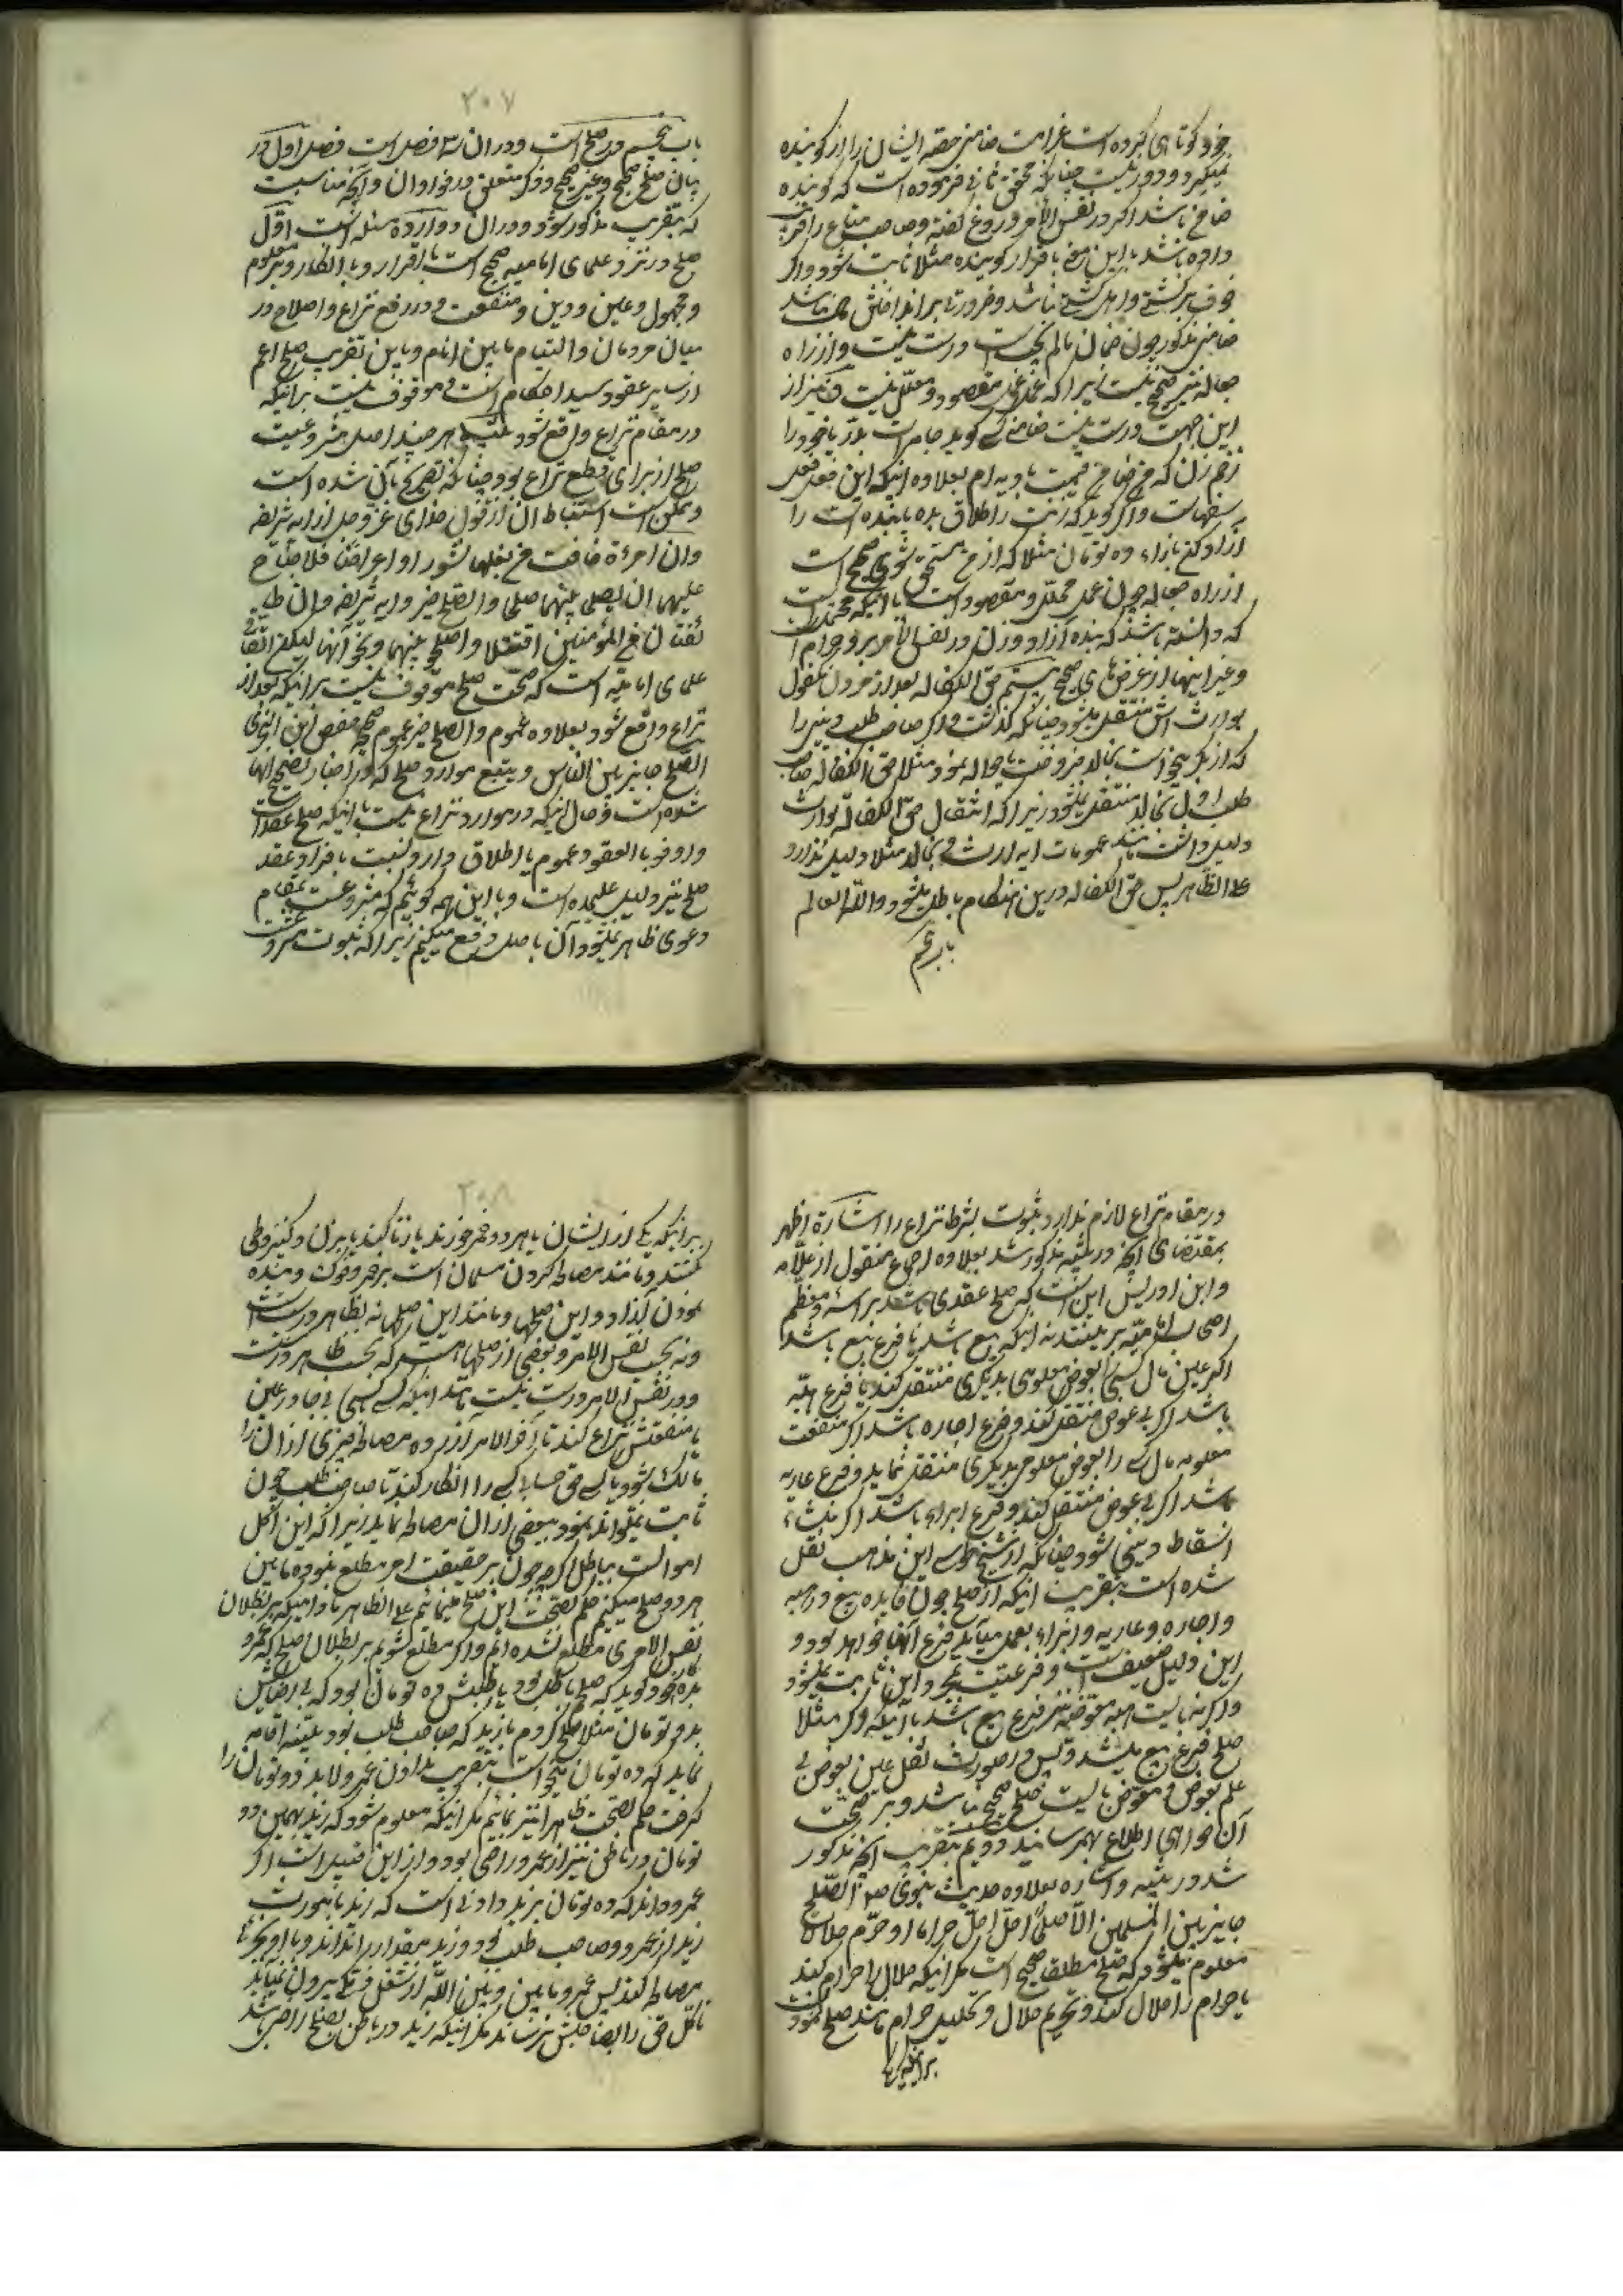 خود کوتاهی کرده است غرامت ضامنی حصّه ایشان را از کوینده
نمیکیرد و دور نیست چنانکه محقق ثانی فرموده است که کوینده
ضامن باشد اکر در نفس الأمر دروغ کفته و صاحب متاع را فریب
داده باشد با این معنی باقرار کوینده مثلا ثابت شود و اکر
خوف بر کشتی و اهل کشتی نباشد و ضرورتا بر انداختش نباشد
ضامنی مذکور چون ضمان مالم یجب است درست نیست و از راه
جعاله نیز صحیح نیست زیرا که عمل مقصود و محلّل نیست و نیز از
این جهت درست نیست ضامنی کسی کوید جامه‌ات بدر یا خود را
زخم زن که من ضامن قیمت یا دیه‌ام بعلاوه آنکه این فعل فعل
سفهاست و اکر کوید که زنت را طلاق بده یا بنده‌ات را
آزاد کن بازاء ده تومان مثلا که از من مستحق شوی صحیح است
از راه جعاله چون عمل محلّل و مقصود است با آنکه محتمل است
که دانسته باشد که بنده آزاد و زن در نفس الأمر بر او حرام است
و غیر اینها از غرضهای صحیح بیستم حق الکفاله بعد از مردن مکفول له
بوارث‌اش منتقل میشود چنانکه کذشت و اکر صاحب طلب دینی را
که از بکر میخواست بخالد فروخت یا حواله نمود مثلا حق الکفاله صاحب
طلب اول بخالد منتقل نمیشود زیرا که انتقال حق الکفاله بوارث
دلیل داشت مانند عمومات آیه ارث و بخالد مثلا دلیل ندارد
علی الظاهر پس حق الکفاله درین هنکام باطل میشود والله العالم
باب پنجم
۲۰۷
باب پنجم در صلح است و در آن سه فصل است فصل اول در
بیان صلح صحیح و غیر صحیح و ذکر متعلق در فراوان و آنچه مناسبت
که بتقریب مذکور شود و در آن دوازده مسئله است اوّل
صلح در نزد علمای امامیه صحیح است با اقرار و با انکار و بر معلوم
و مجهول و عین و دین و منفعت و در رفع نزاع و اصلاح در
میان مردمان و التیام مابین انام و باین تقریب صلح اعم
از سایر عقود و سید احکام است و موقوف نیست بر آنکه
در مقام نزاع واقع شود هر چند اصل مشروعیت
صلح از برای قطع نزاع بود چنانکه تصریح بآن شده است
و ممکن است استنباط آن از قول خدای عزّ و جل از آیه شریفه
وان امرءة خافت من بعلها نشورا او اعراضا فلا جناح
علیهما ان یصلحا بینهما صلحا والصلح خیر و آیه شریفه و ان طا
ئفتان من المؤمنین اقتتلا واصلحو بینهما و نحو آنها لیکن اتفاق
علمای امامیّه است که صحّت صلح موقوف نیست بر آنکه بعد از
نزاع واقع شود بعلاوه عموم والصلح خیر و عموم صحیحه حفص ابن البختری
الصّلح جایز بین الناس و بتتبع موارد صلح که در اخبار تصحیح آنها
شده است و حال آنکه در موارد نزاع نیست با آنکه صلح عقد است
و اوفو بالعقود عموم یا اطلاق دارد و نسبت بافراد عقد
صلح نیز دلیل علیحده است و با این همه کوئیم که مشروعیت بمقام
دعوی ظاهر میشود آن باصل رفع میکنیم زیرا که ثبوت مشروعیت
در مقام نزاع لازم ندارد ثبوت بشرط نزاع را اشاره اظهر
بمقتضای آنچه در بیّنه مذکور شد بعلاوه اجماع منقول از علّامه
و ابن ادریس این است که صلح عقدی باشد براسه و معظم
اصحاب امامیّه برینند نه آنکه بیع باشد یا فرع بیع باشد
اکر عین مال کسی بعوض معلومی بدیکری منتقل کند یا فرع هبّه
باشد اکر بی عوض منتقل کند و فرع اجاره باشد اکر منفعت
معلومه مال کسی را بعوض معلومی بدیکری منتقل نماید و فرع عاریه
باشد اکر بی عوض منتقل کند و فرع ابراء باشد اکر منشاء
اسقاط دینی شود چنانکه از شیخ طوسی این مذهب نقل
شده است بتقریب آنکه از صلح چون فایده بیع و هبه
و اجاره و عاریه و ابراء بعمل میآید فرع آنها خواهد بود و
این دلیل ضعیف است و فرعیت بمجرد این ثابت نمیشود
و اکر نه بایست هبه معوضه نیز فرع بیع باشد با آنکه و اکر مثلا
صلح فرع بیع میشد و پس در صورت نقل عین بعوض بی
علم بعوض و معوّض نایست صلح صحیح باشد و بر صحّت
آن خواهی اطلاع بهم رسانید دویم بتقریب آنچه مذکور
شد در بیّنه و اشاره بعلاوه حدیث نبوی ص الصّلح
جایز بین المسلمین الّا صلحا احلّ حراما او حرّم حلالا
معلوم میشود که صلح مطلق صحیح است مکر آنکه حلال را حرام کند
یا حرام را حلال کند و تحریم حلال و تحلیل حرام مانند صلح نمودنست
بر آنکه یکی
۲۰۸
بر آنکه یکی از ایشان یا هر دو خمر خورند یا زنا کنند یا بزن و کنیز وطی
نکنند و مانند مصالحه کردن مسلمان است بر خمر و خوک و بنده
نمودن آزاد و این صلحها و مانند این صلحها نه بظاهر درست است
و نه بحسب نفس الأمر و بعضی از صلحها هست که بحسب ظاهر درست
و در نفس الأمر درست نیست مانند آنکه کسی بی جا در عین
یا منفعتش نزاع کند تا آخر الأمر از روی مصالحه چیزی از آن را
مالک شود یا کسی حق حسابی کسی را انکار کند تا صاحب طلب چون
ثابت نتواند نمود ببعضی از آن مصالحه نماید زیرا که این اکل
اموالست بباطل اکر چه چون بر حقیقت امر مطلع نبوده مابین
هر دو صلح میکنیم حکم بصحت این صلح مینمائیم علی الظاهر مادامیکه بر بطلان
نفس الأمری مطلع نشده ایم و اکر مطلع شویم بر بطلان صلح که عمرو
بده خود کوید که صلح باطل بود یا طلبش ده تومان بود که بی رضایش
بدو تومان مثلا صلح کردم یا زید که صاحب طلب بود بیّنه اقامه
نماید که ده تومان میخواست بتقریب ندادن عمرو لابد دو تومان را
کرفت حکم بصحت ظاهرا نیز نمائیم مکر آنکه معلوم شود که زید بهمین دو
تومان در باطن نیز از عمرو راضی بود و از این قبیل است اکر
عمرو داند که ده تومان بزید دادنی است که زید بانمورث
زید از عمرو و صاحب طلب بود و زید مقدار را نداند و با او بچیزی
مصالحه کند پس عمرو مابین و بین الله از شغل ذمّه بیرون نمیآید
تا کل حق را بصاحبش نرساند مکر آنکه زید در باطن بصلح راضی باشد